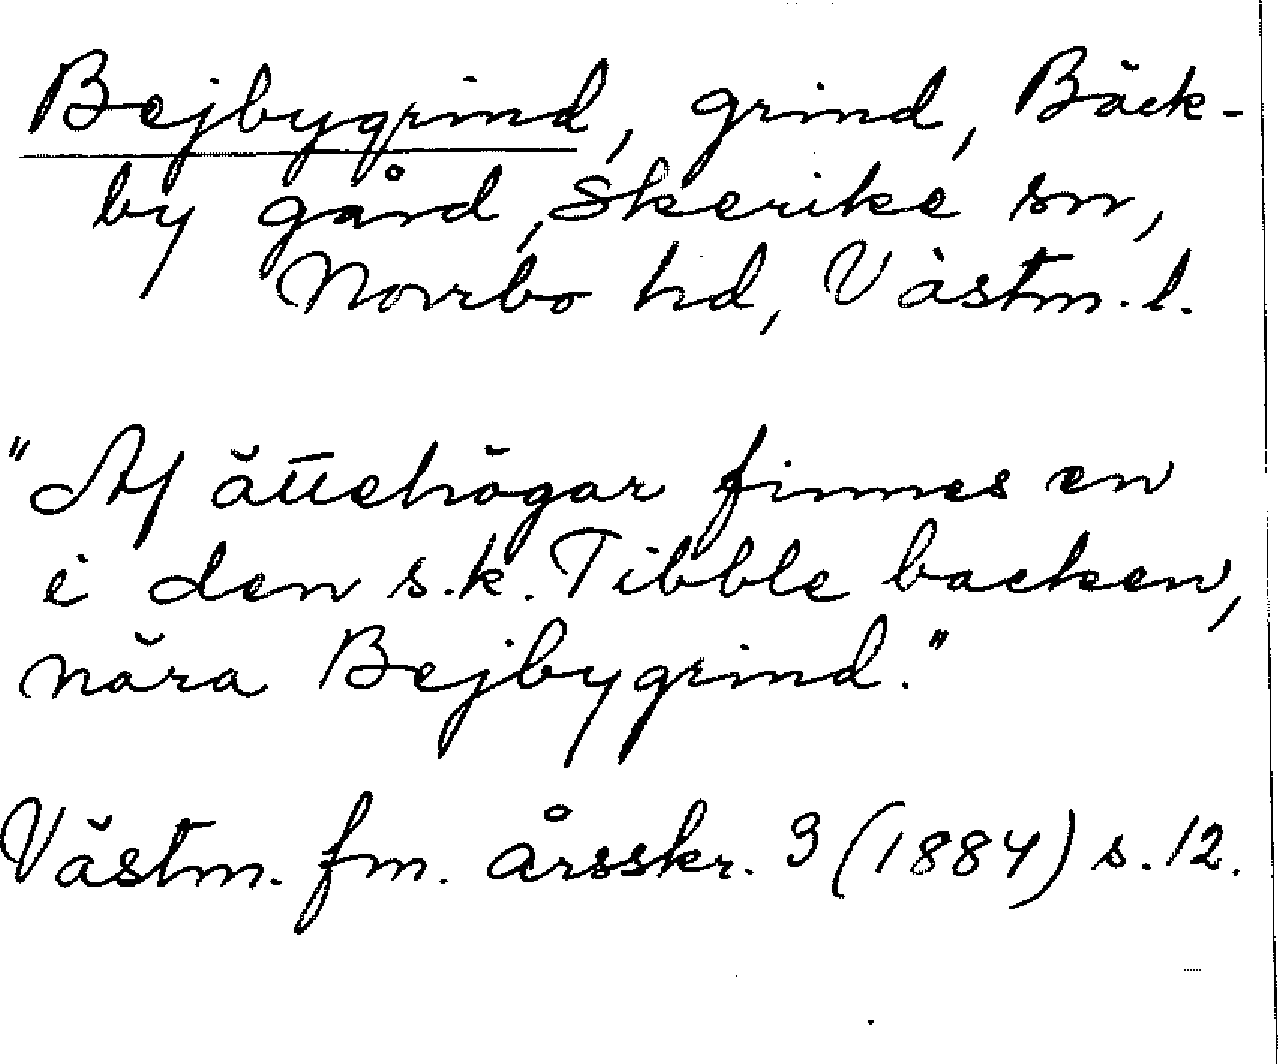 Bejbygrind, grind, Bäck-
by gård, Skerike sn,
Norrbo hd, Västm. l.
"Af ättehögar finnes en
i den s.k. Tibble backen,
nära Bejbygrind."
Västm. fm. årsskr. 3 (1884) s. 12.